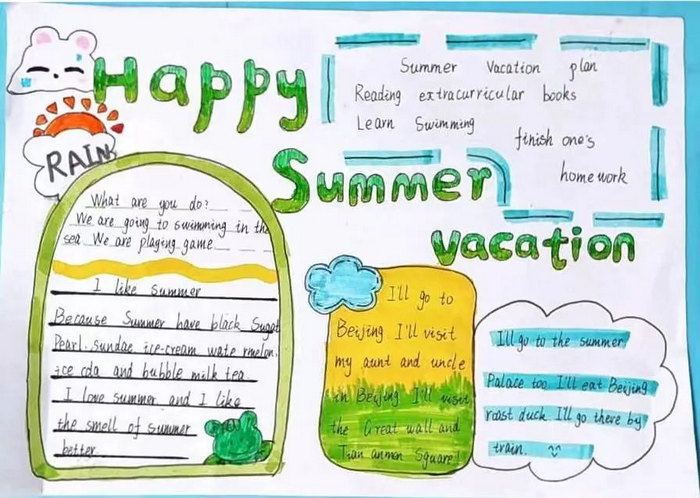 Happy
Summer
vacation
Summer Vacation plan
Reading extracurricular books
Learn Swimming
finish one's
homework
RAIN
What are you do?
We are going to swimming in the
sea We are plaging game
I like summer
Because Summer have black Sugar
Pearl. sundae ice-cream wate rmelon.
ice cda and bubble milk tea
I love summer and I like
the smell of summer
better
I'll go to
Beijing I'll visit
my aunt and uncle
in Beijing I'll visit
the Great wall and
Tian anmen Square!
I'll go to the summer
Palace too I'll eat Beijing
roast duck I'll go there by
train.